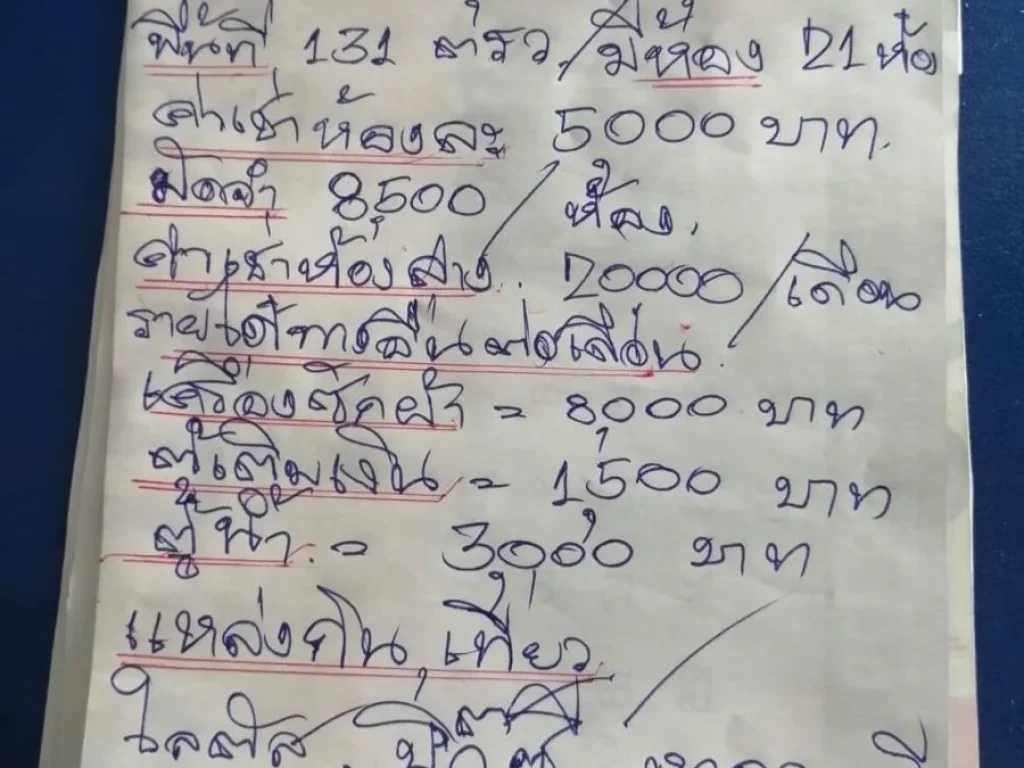 พื้นที่ 131 ตรว / มีห้อง 21 ห้อ
ค่าเช่าห้องละ 5000 บาท.
มัดจำ 8,500 / ห้อง.
ค่าเช่าห้องล่าง. 20000 / เดือน
รายได้ทางอื่นต่อเดือน.
เครื่องซักผ้า = 8,000 บาท
ตู้เติมเงิน = 1,500 บาท
ตู้น้ำ. = 3,000 บาท
แหล่งกิน เที่ยว
โลตัส บิ๊กซี